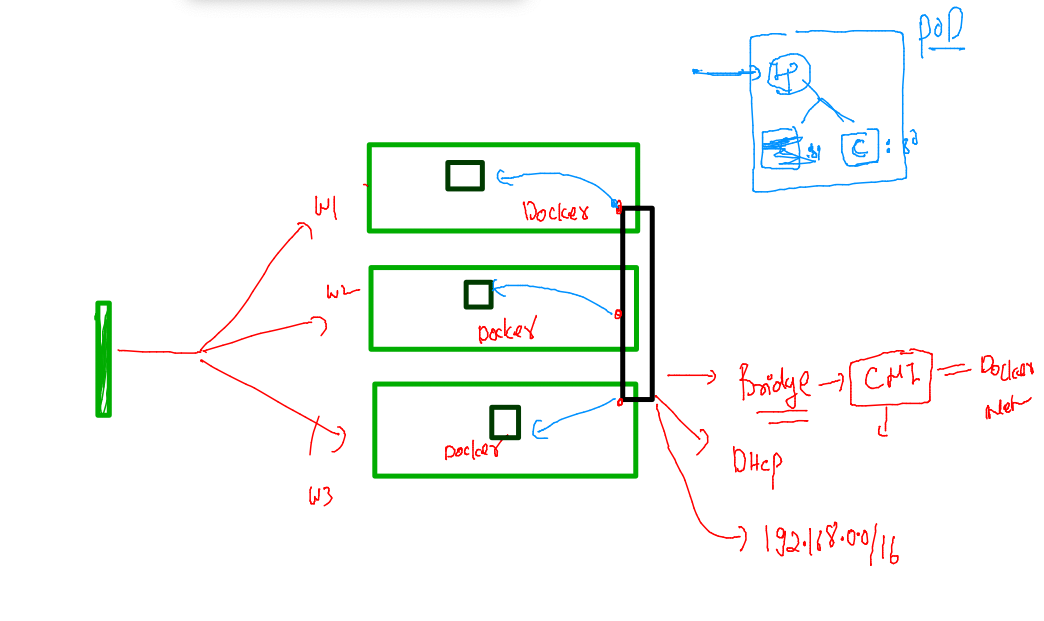 POD
IP
C
W1
Docker
W2
Docker
Docker
W3
Bridge
CNI
Docker
Net
DHCP
192.168.0.0/16